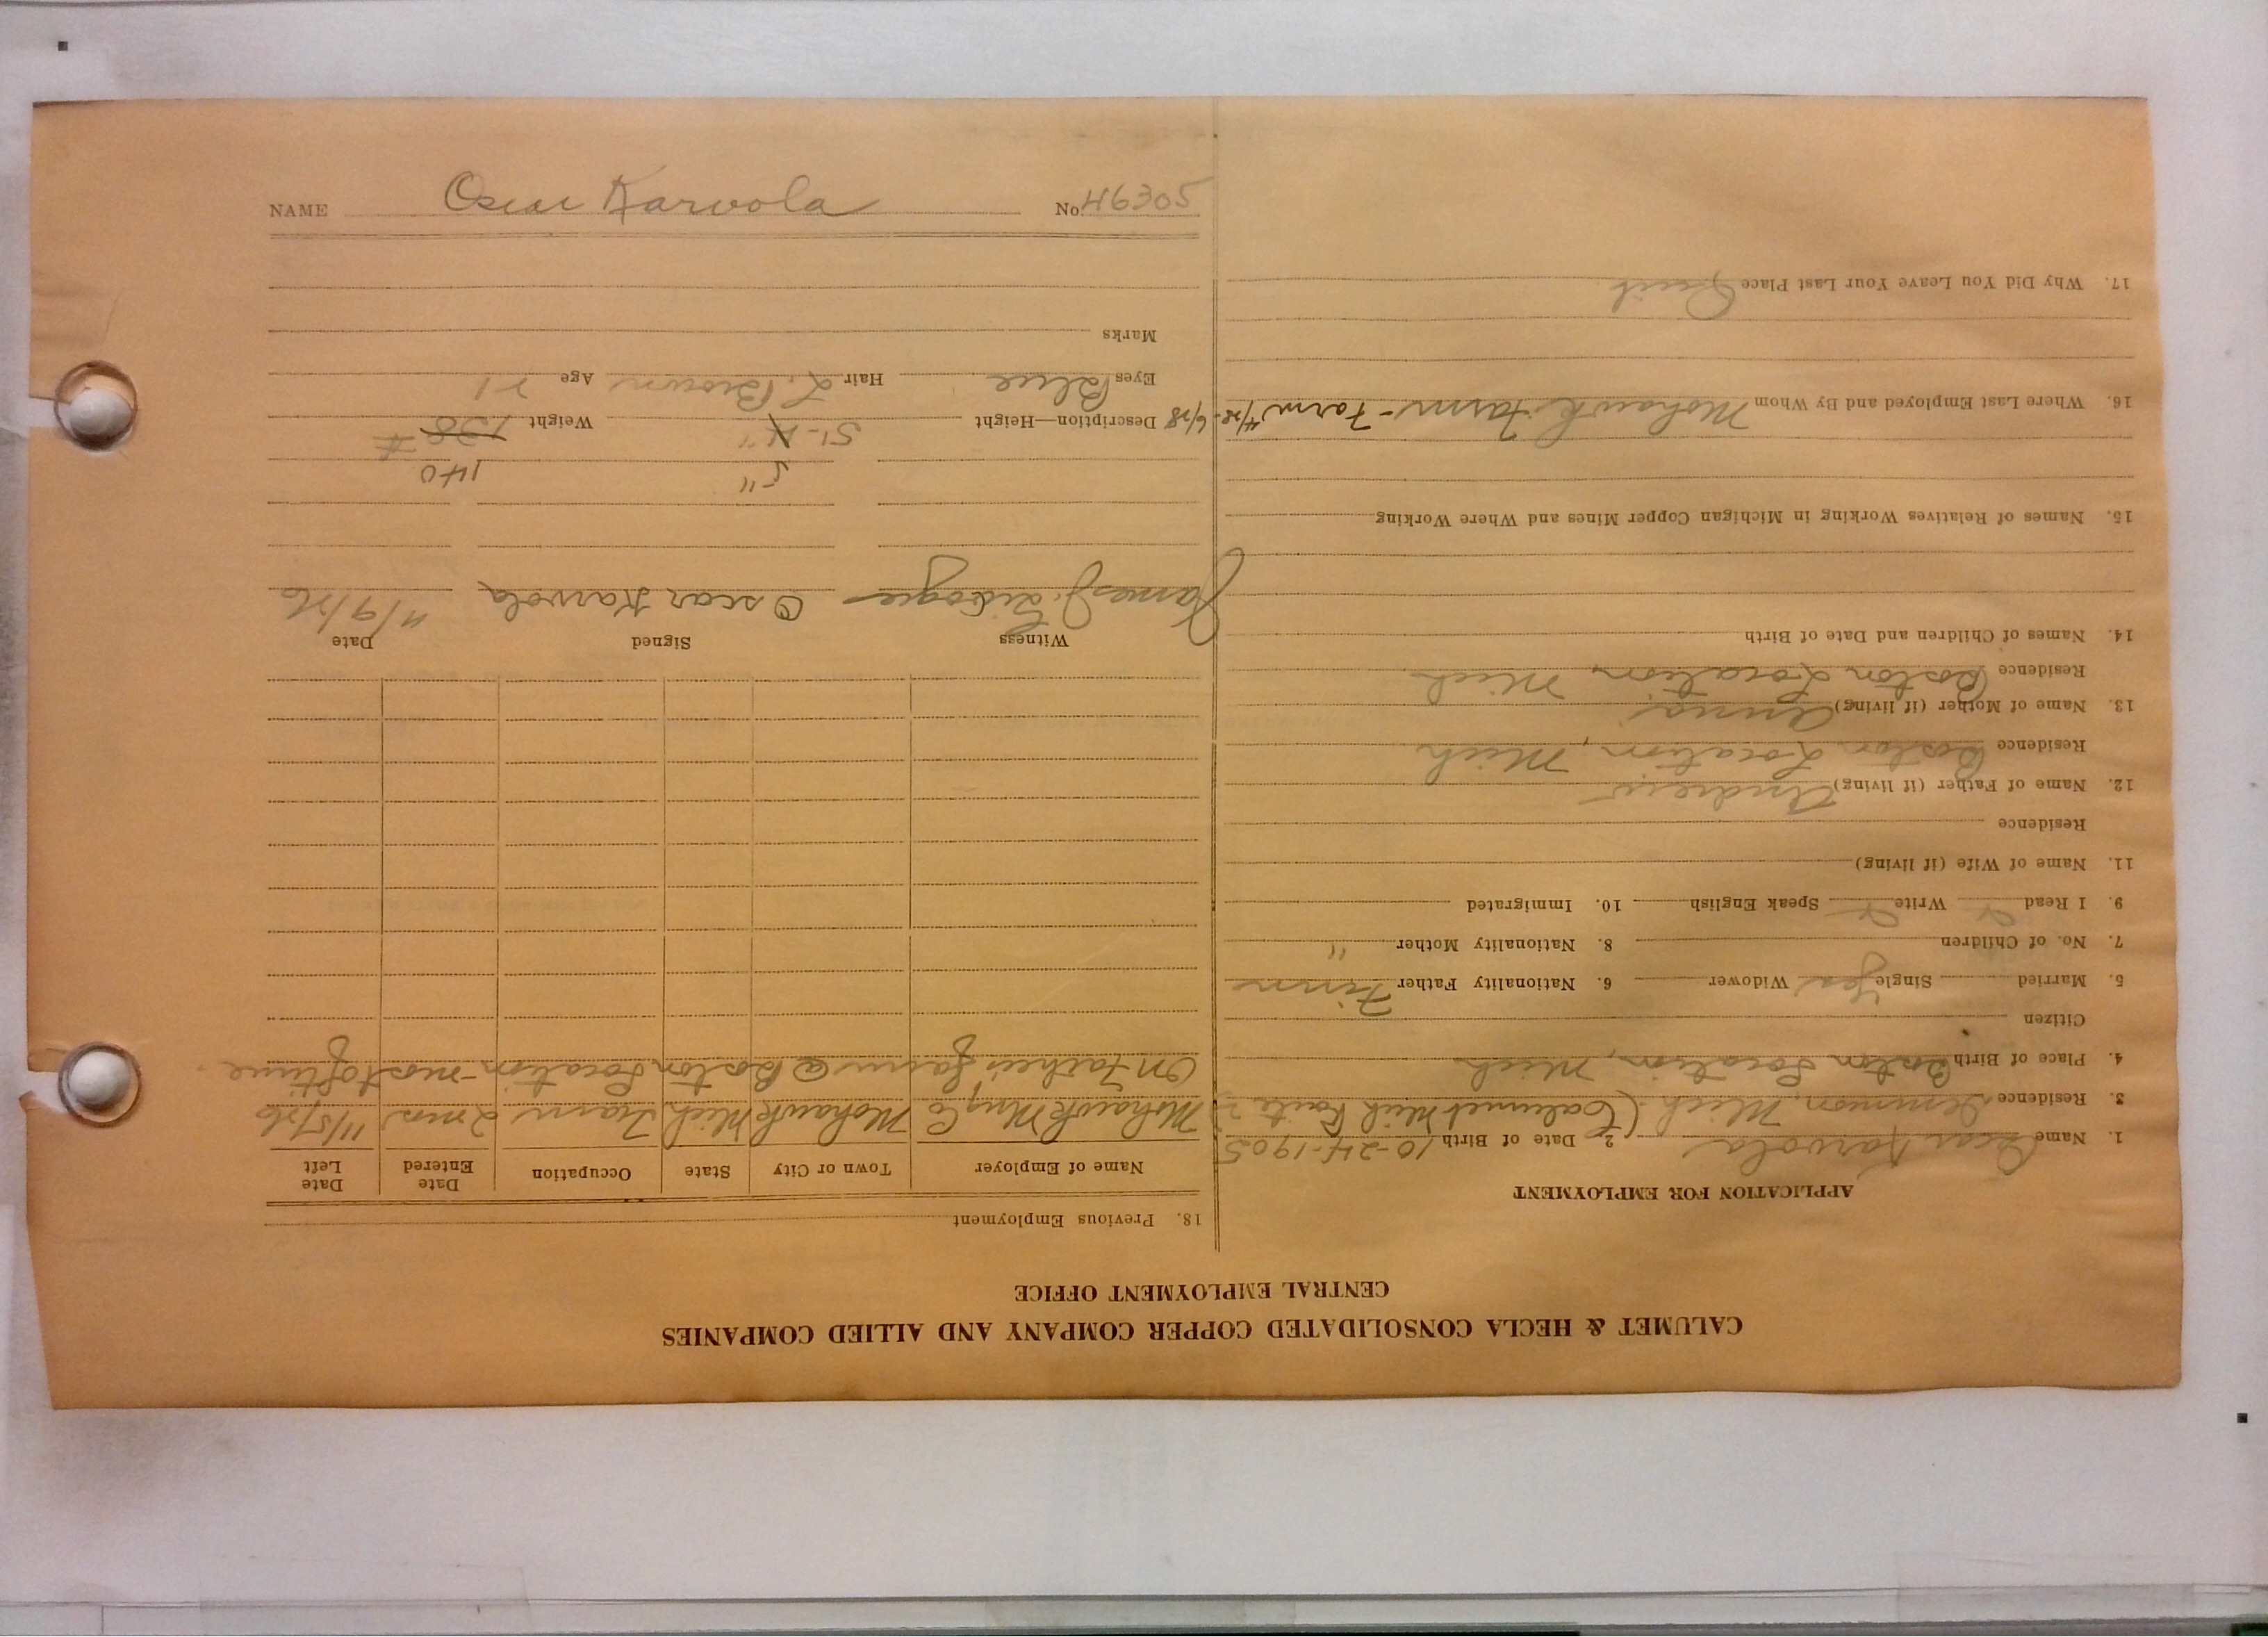 CALUMET & HECLA CONSOLIDATED COPPER COMPANY AND ALLIED COMPANIES
CENTRAL EMPLOYMENT OFFICE
APPLICATION FOR EMPLOYMENT
1. Name Oscar Karvola 2. Date of Birth 10-24-1905
3. Residence Demmon, Mich (Calumet Mich Route 2)
4. Place of Birth Boston Location, Mich
Citizen
5. Married Single Yes Widower 6. Nationality Father Finn
7. No. of Children 8. Nationality Mother "
9. I Read Write Speak English 10. Immigrated
11. Name of Wife (if living)
Residence
12. Name of Father (if living) Andrew
Residence Boston Location, Mich
13. Name of Mother (if living) Anna
Residence Boston Location, Mich
14. Names of Children and Date of Birth
15. Names of Relatives Working in Michigan Copper Mines and Where Working
16. Where Last Employed and By Whom Mohawk Farm - Farm 4/28 - 6/28
17. Why Did You Leave Your Last Place Quit
18. Previous Employment
Name of Employer Town or City State Occupation Date Entered Date Left
Mohawk Mng Co Mohawk Mich Farm 2 mos 11/5/26
On Father's farm @ Boston Location - most of time
Witness Signed Date
James J. Oscar Karvola 11/9/26
5" 140
Description—Height 5'-4" Weight 138 #
Eyes Blue Hair L. Brown Age 21
Marks
NAME Oscar Karvola No. 46305